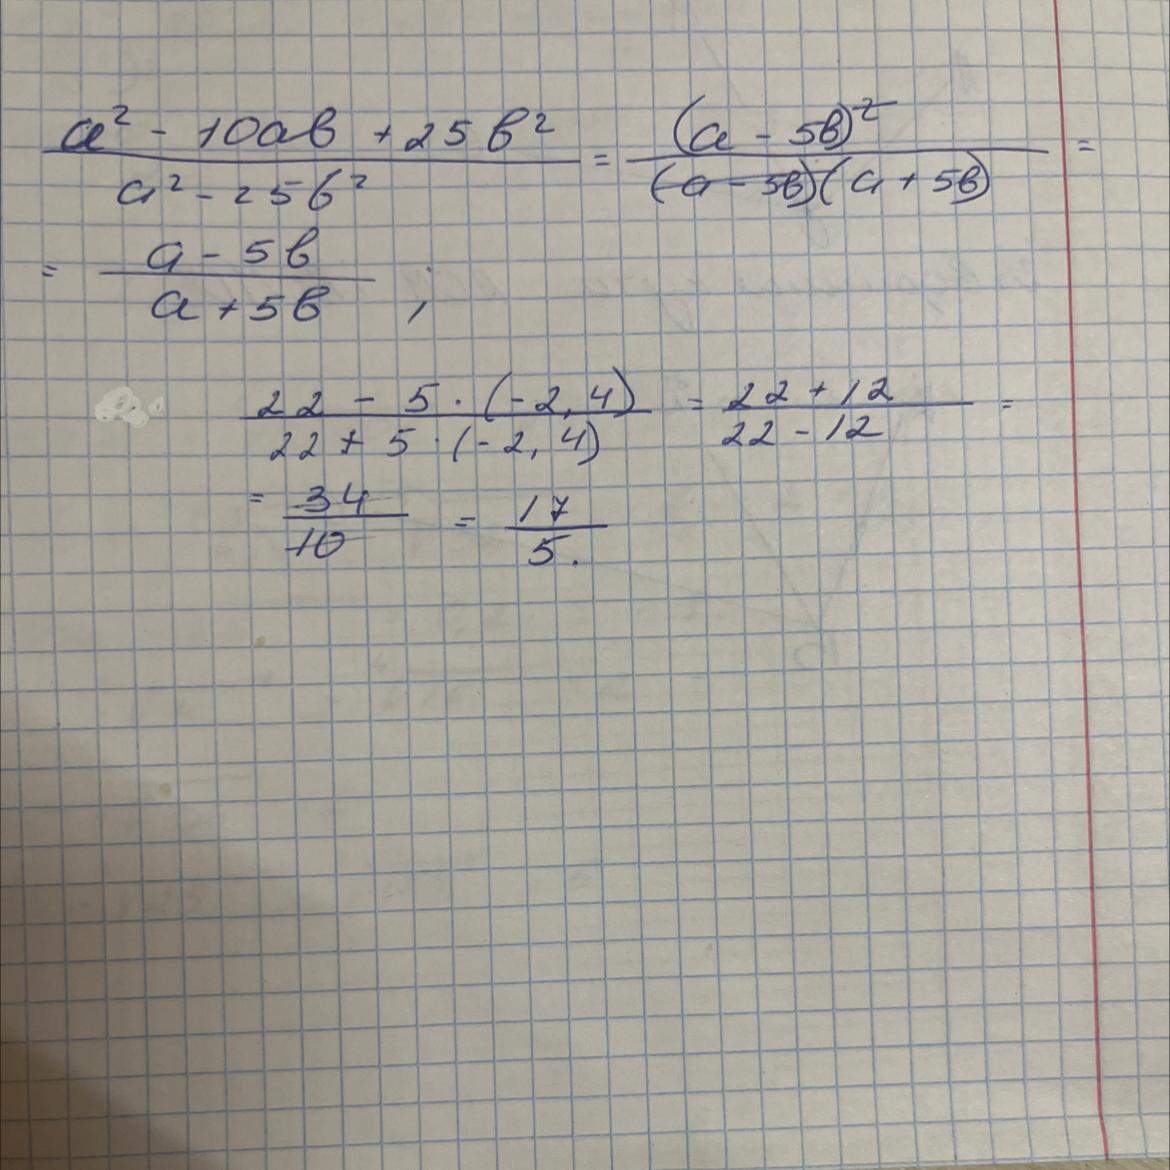 a² - 10ab + 25b² / a² - 25b² = (a - 5b)² / (a - 5b)(a + 5b) =
= a - 5b / a + 5b ;
22 - 5 · (-2,4) / 22 + 5 · (-2,4) = 22 + 12 / 22 - 12 =
= 34 / 10 = 17 / 5 .